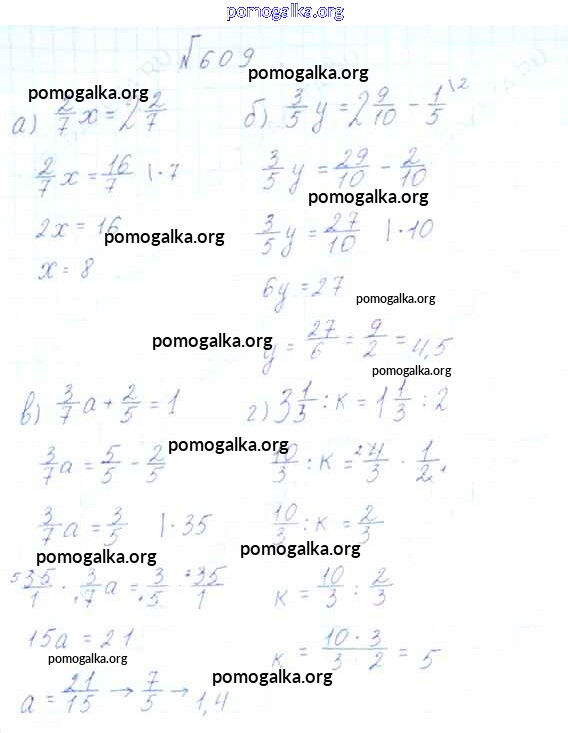 pomogalka.org
№609
pomogalka.org
pomogalka.org
а) 2/7 x = 2 2/7
2/7 x = 16/7 |·7
2x = 16
pomogalka.org
x = 8
б) 3/5 y = 2 9/10 - 1/5 \2
3/5 y = 29/10 - 2/10
pomogalka.org
3/5 y = 27/10 |·10
6y = 27
pomogalka.org
pomogalka.org
y = 27/6 = 9/2 = 4,5
pomogalka.org
в) 3/7 a + 2/5 = 1
3/7 a = 5/5 - 2/5
pomogalka.org
3/7 a = 3/5 |·35
pomogalka.org
5 35/1 · 3/7 1 a = 3/5 1 · 7 35/1
15a = 21
pomogalka.org
a = 21/15 → 7/5 → 1,4
г) 3 1/3 : к = 1 1/3 : 2
10/3 : к = 2 4/3 · 1/2 1
10/3 : к = 2/3
pomogalka.org
к = 10/3 : 2/3
к = 10·3/3·2 = 5
pomogalka.org